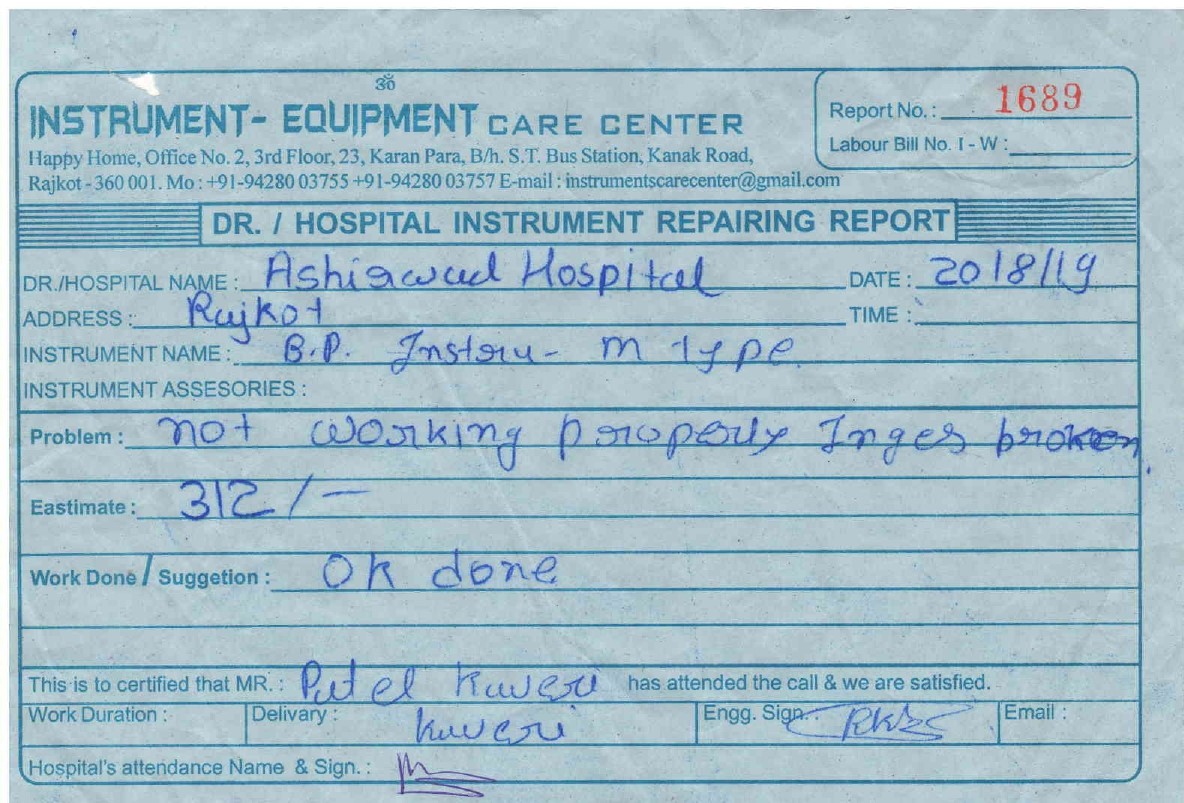 ॐ
INSTRUMENT- EQUIPMENT CARE CENTER
Happy Home, Office No. 2, 3rd Floor, 23, Karan Para, B/h. S.T. Bus Station, Kanak Road,
Rajkot - 360 001. Mo : +91-94280 03755 +91-94280 03757 E-mail : instrumentscarecenter@gmail.com
Report No. : 1689
Labour Bill No. I - W :
DR. / HOSPITAL INSTRUMENT REPAIRING REPORT
DR./HOSPITAL NAME : Ashirwad Hospital DATE : 20/8/19
ADDRESS : Rajkot TIME :
INSTRUMENT NAME : B.P. Instru- m type
INSTRUMENT ASSESORIES :
Problem : not working properly Inges broken
Eastimate : 312/-
Work Done / Suggetion : Ok done
This is to certified that MR. : Patel Kaveri has attended the call & we are satisfied.
Work Duration : Delivary : Kaveri Engg. Sign. : Email :
Hospital's attendance Name & Sign. :